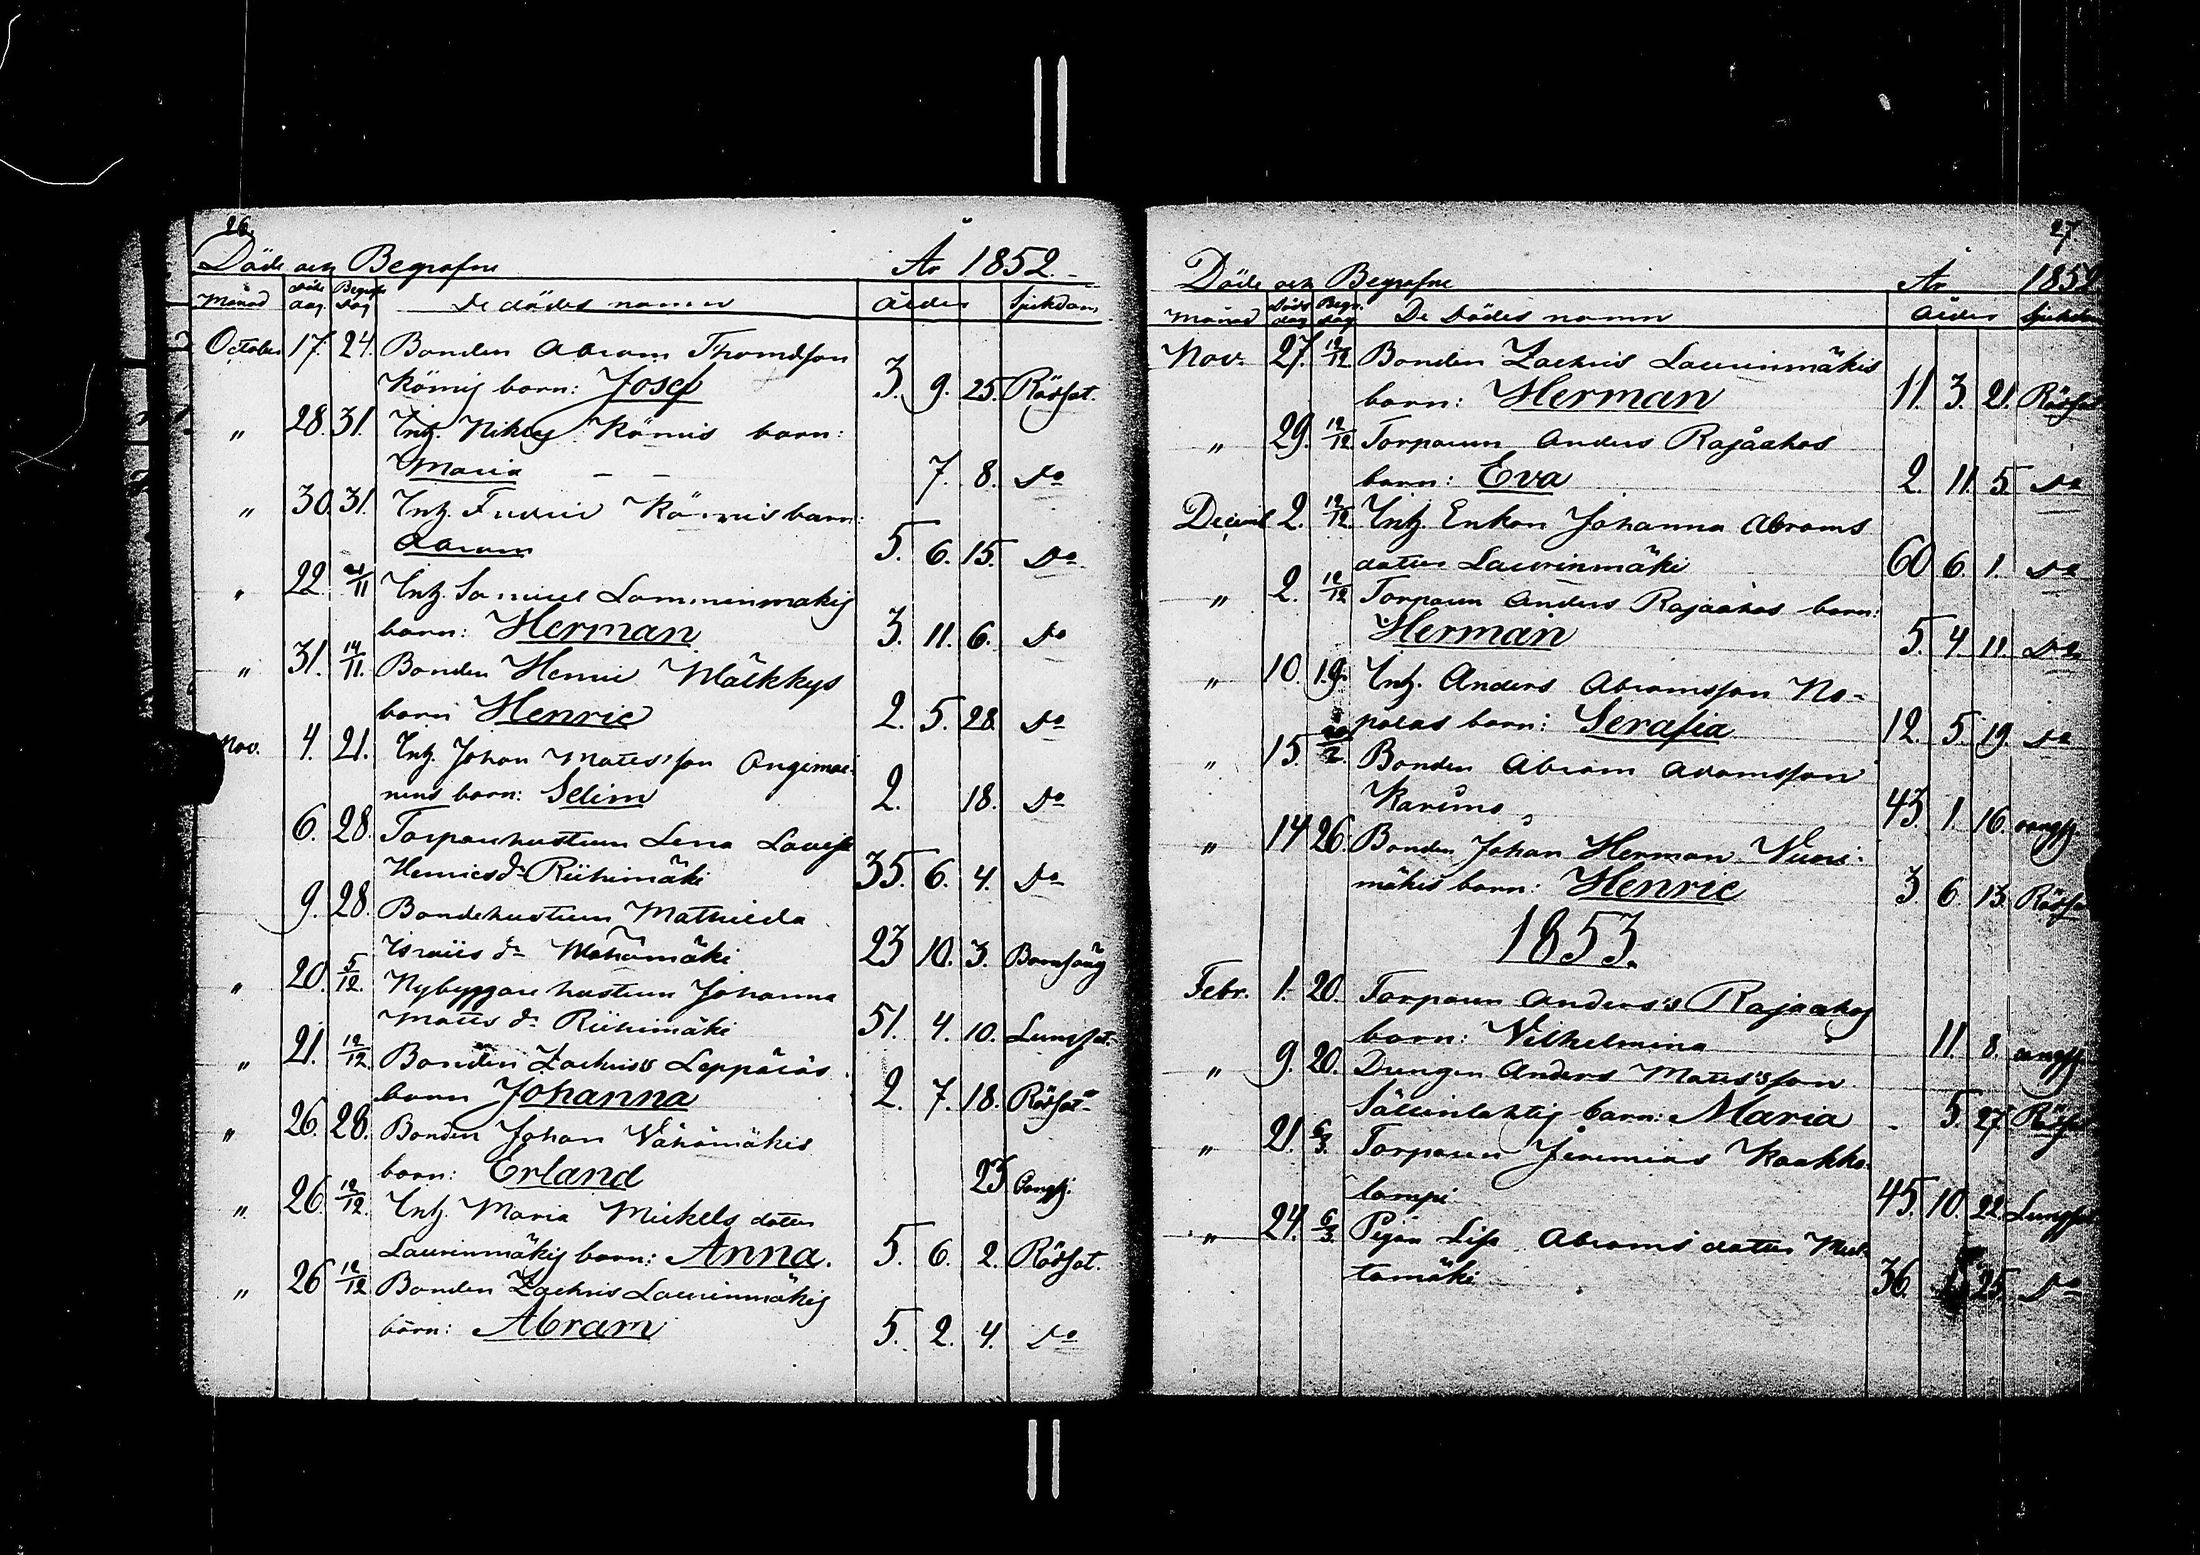 26.
Döde och Begrafne År 1852.
Månad Döds dag Begrafn dag De dödes namn Ålder Sjukdom
October 17. 24. Bonden Abram Thomasson
Römis barn: Josef 3. 9. 25. Rödsot.
" 28. 31. Inh. Römis barn:
Maria – – 7. 8. Do
" 30. 31. Inh. Römis barn:
Abram 5. 6. 15. Do
" 22. 21/11 Inh. Samuel Lamminmäkis
barn: Herman 3. 11. 6. Do
" 31. 14/11. Bonden Henric Mäkkys
barn Henric 2. 5. 28. Do
Nov. 4. 21. Inh. Johan Matts'son
barn: Selim 2. 18. Do
6. 28. Torparhustrun Lena Lovisa
Henricsdr Riihimäki 35. 6. 4. Do
9. 28. Bondehustrun Mathilda
Israils dr Wähämäki 23 10. 3. Barnsäng
" 20. 5/12. Nybyggarehustrun Johanna
Matts dr Riihimäki 51. 4. 10. Lungsot.
" 21. 12/12 Bonden Zachriss Leppäiäs
barn Johanna 2. 7. 18. Rödsot.
" 26. 28. Bonden Johan Vähämäkis
barn: Erland 23
" 26 12/12. Inh. Maria Mickels dotter
Laurinmäkis barn: Anna. 5. 6. 2. Rödsot.
" 26 12/12 Bonden Zachris Laurinmäkis
barn: Abram 5. 2. 4. Do
27
Döde och Begrafne År 1852
Månad Döds dag Begr. dag De Dödes namn Ålder Sjukdom
Nov. 27. 12/12 Bonden Zachris Laurinmäkis
barn: Herman 11. 3. 21. Rödsot
" 29. 12/12 Torparen Anders Rajaahos
barn: Eva 2. 11. 5. Do
Decemb 2. 12/12. Inh. Enkan Johanna Abrams
dotter Laurinmäki 60 6. 1. Do
" 2. 12/12 Torparen Anders Rajaahos barn:
Herman 5. 4 11. Do
" 10. 19. Inh. Anders Abramsson No-
polas barn: Serafia 12. 5. 19. Do
" 15. Bonden Abram Adamsson
43. 1. 16.
" 14 26. Bonden Johan Herman Vuori-
mäkis barn: Henric 3 6 13. Rödsot
1853.
Febr. 1. 20. Torparen Anders's Rajaahos
barn: Vilhelmina 11. 8.
" 9. 20. Drängen Anders Matts'sson
Sällinlahtis barn: Maria – 5. 27. Rödsot
" 21. 6/3. Torparen Jeremias Kaakko-
lampi 45. 10. 22. Lungsot
" 24. 6/3. Pigan Lisa Abrams dotter
36. 25. Do